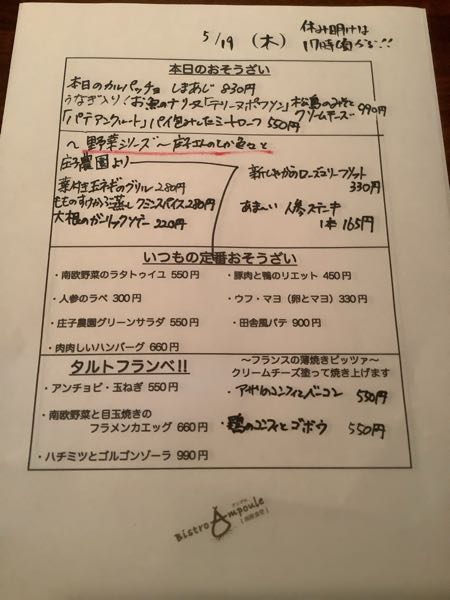 5/19 (木)
休み明けは
17時頃から!!
本日のおそうざい
本日のカルパッチョ しまあじ 830円
うなぎ入り!お魚のテリーヌ「テリーヌポワソン」
クリームチーズ 990円
「パテアンクルート」パイ包みしたミートローフ 550円
〜野菜シリーズ〜
庄子農園より
葉付き玉ネギのグリル 280円
クミンスパイス 280円
大根のガーリックソテー 220円
新じゃがのローズマリーフリット
330円
あま〜い 人参ステーキ
1本 165円
いつもの定番おそうざい
・南欧野菜のラタトゥイユ 550円
・豚肉と鴨のリエット 450円
・人参のラペ 300円
・ウフ・マヨ(卵とマヨ) 330円
・庄子農園グリーンサラダ 550円
・田舎風パテ 900円
・肉肉しいハンバーグ 660円
タルトフランベ!!
〜フランスの薄焼きピッツァ〜
クリームチーズ塗って焼き上げます
・アンチョビ・玉ねぎ 550円
・アサリのコンフィとベーコン 550円
・南欧野菜と目玉焼きの
フラメンカエッグ 660円
・鶏のコンフィとゴボウ 550円
・ハチミツとゴルゴンゾーラ 990円
Bistro Ampoule